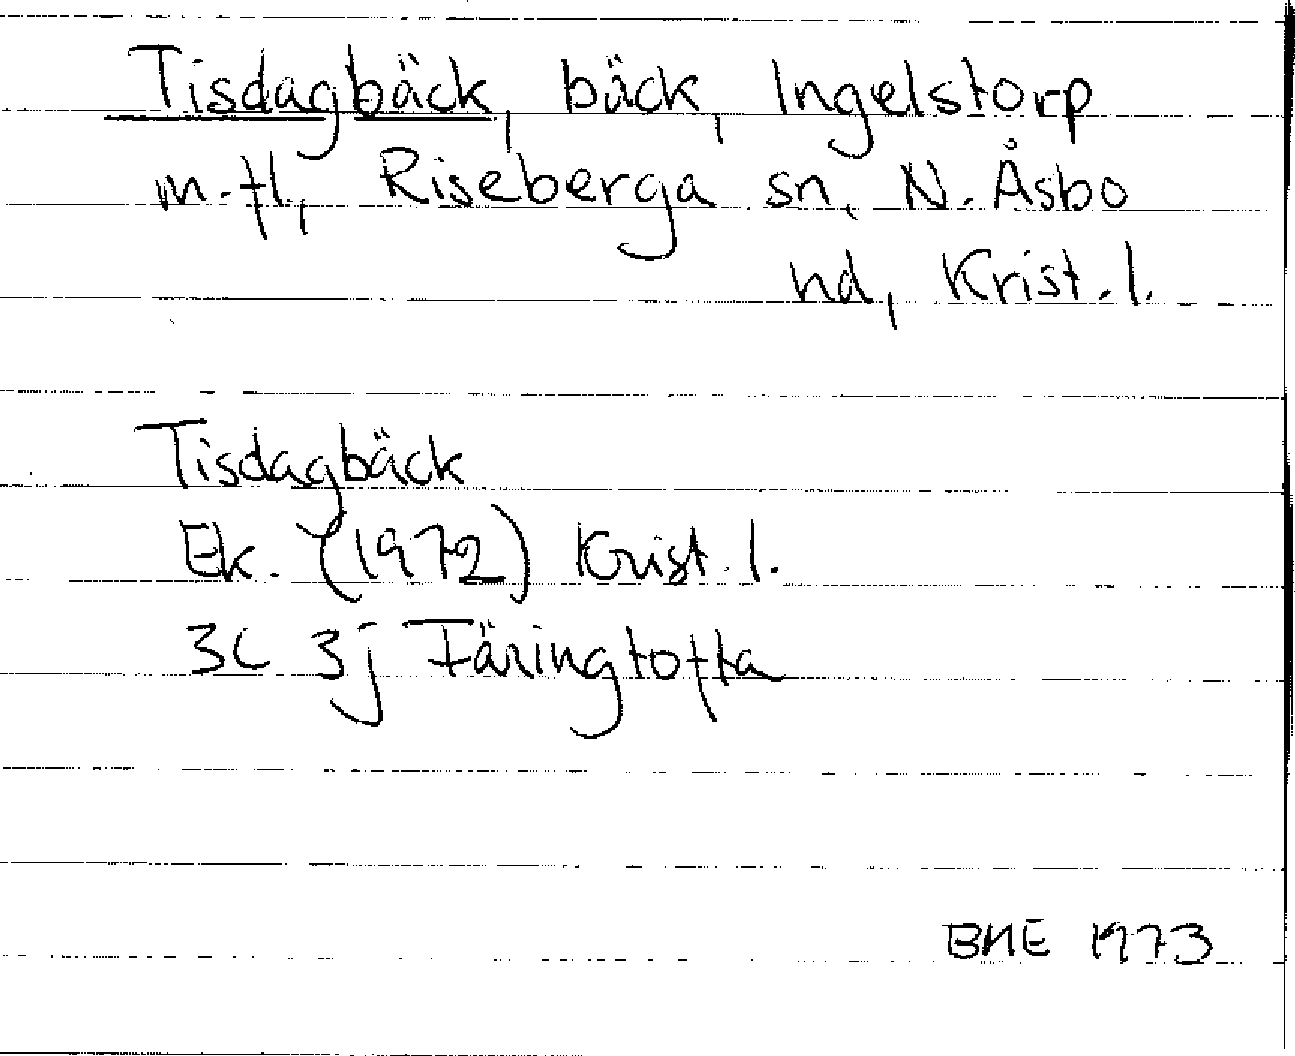 Tisdagbäck, bäck, Ingelstorp
m.fl., Riseberga sn, N. Åsbo
hd, Krist. l.
Tisdagbäck
Ek. (1972) Krist. l.
3C 3j Färingtofta
BHE 1973